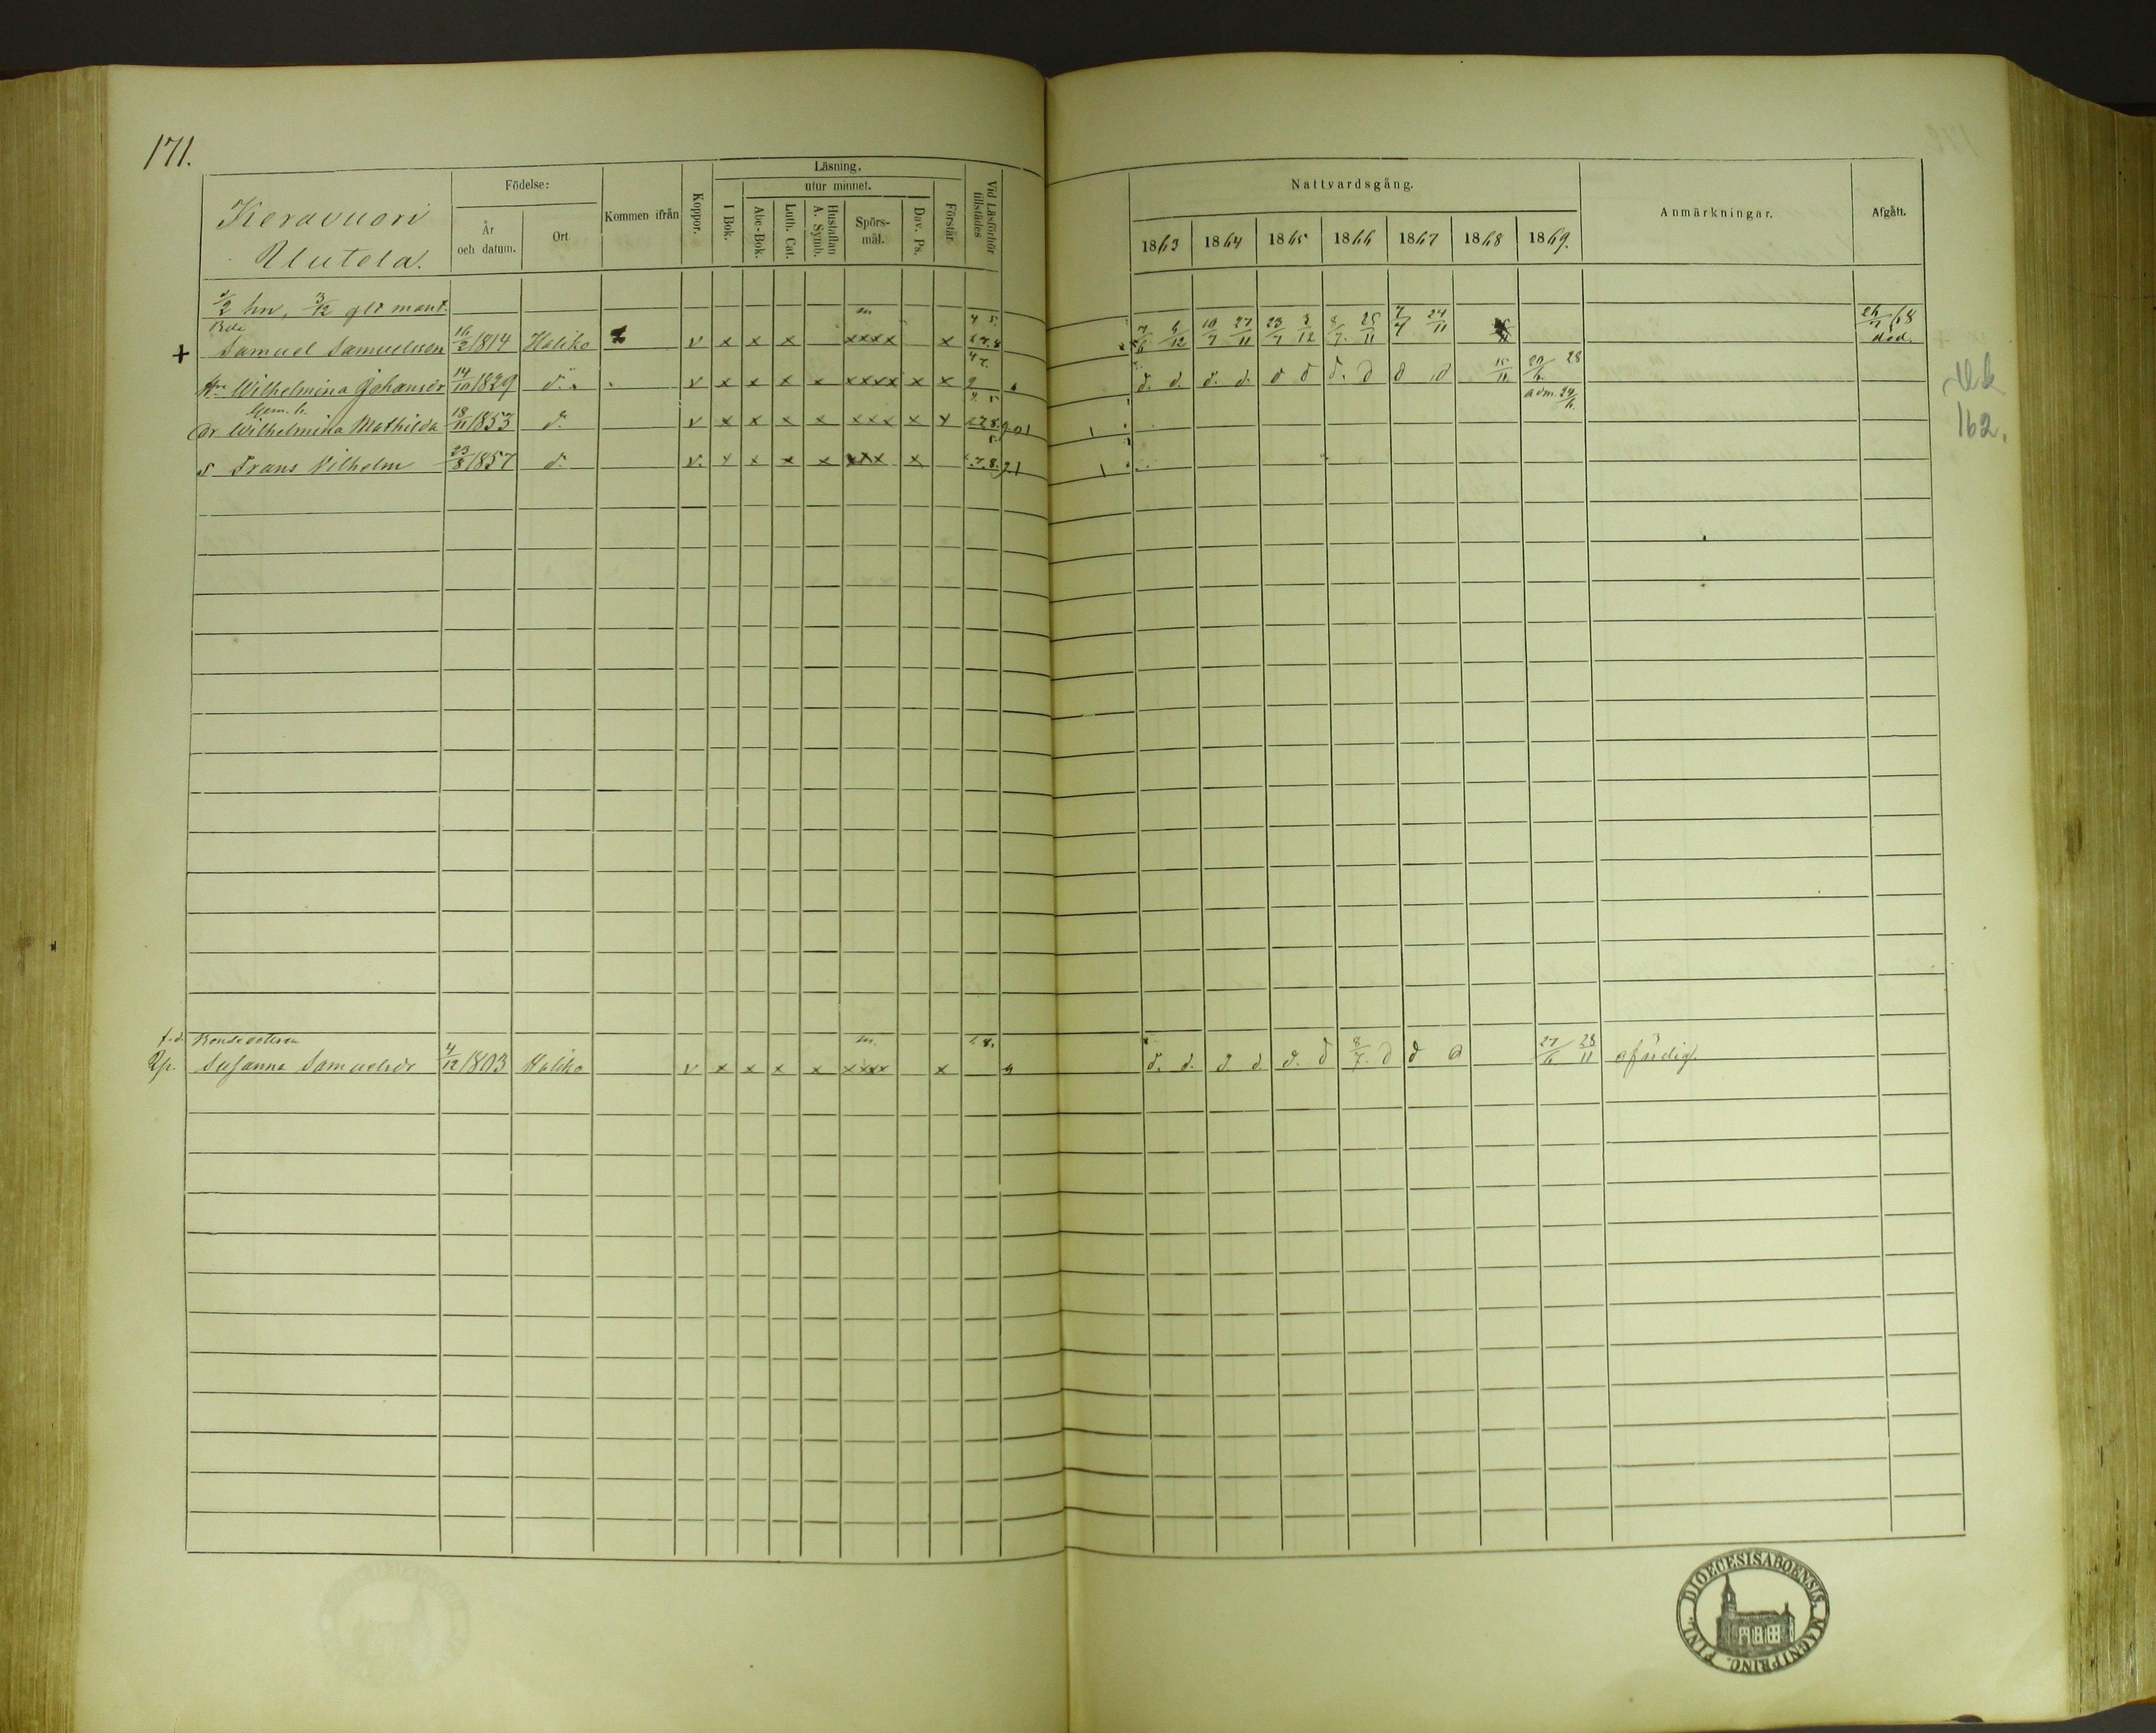 171.
Keravuori
Uutela.
Födelse:
År
och datum.
Ort.
Kommen ifrån
Koppor.
Läsning.
utur minnet.
I Bok.
Abc-Bok.
Luth. Cat.
Hustaflan
A. Symb.
Spörs-
mål.
Dav. Ps.
Förstår.
Vid Läsförhör
tillstädes
Nattvardsgång.
1863 1864 1865 1866 1867 1868 1869.
Anmärkningar.
Afgått.
1/2 hn, 3/12 glt mant.
Samuel Samuelsson 16/2 1814 Haliko v x x x xxxx x 10/7 27/11 23/7 3/12 8/7. 25/11 7/7 24/11 26/7 68
död.
Wilhelmina Johansdr 14/10 1829 d:o v x x x x xxxx x x d. d. d. d. d d d. d d d 15/11 20/6 28
adm. 24/6.
dr Wilhelmina Mathilda 18/11 1853 d:o v x x x x xxx x x
s Frans Vilhelm 23/8 1857 d:o v. x x x x xxx x 7.8.
162.
f.d. Bondedottren
Susanna Samuelsdr 4/12 1803 Haliko v x x x x xxxx x d. d. d d. d. d 8/7. d d d 27/6 28/11 ofärdig.
DIOECESIS ABOENSIS. MAGNI PRINC. FINL.